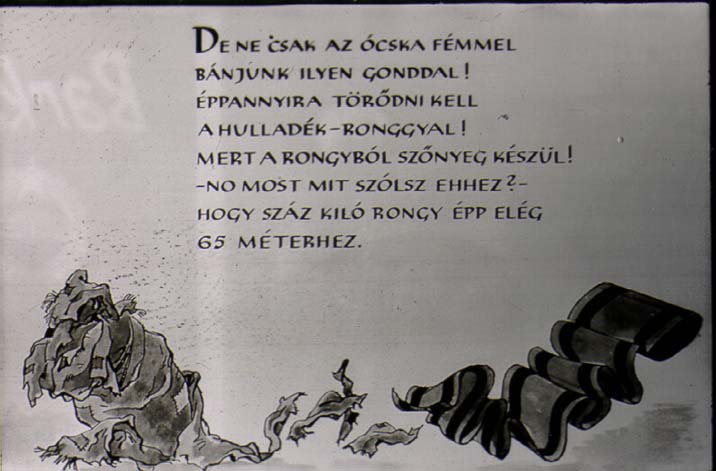 DE NE CSAK AZ ÓCSKA FÉMMEL
BÁNJUNK ILYEN GONDDAL!
ÉPPANNYIRA TÖRŐDNI KELL
A HULLADÉK-RONGGYAL!
MERT A RONGYBÓL SZŐNYEG KÉSZÜL!
-NO MOST MIT SZÓLSZ EHHEZ?-
HOGY SZÁZ KILÓ RONGY ÉPP ELÉG
65 MÉTERHEZ.